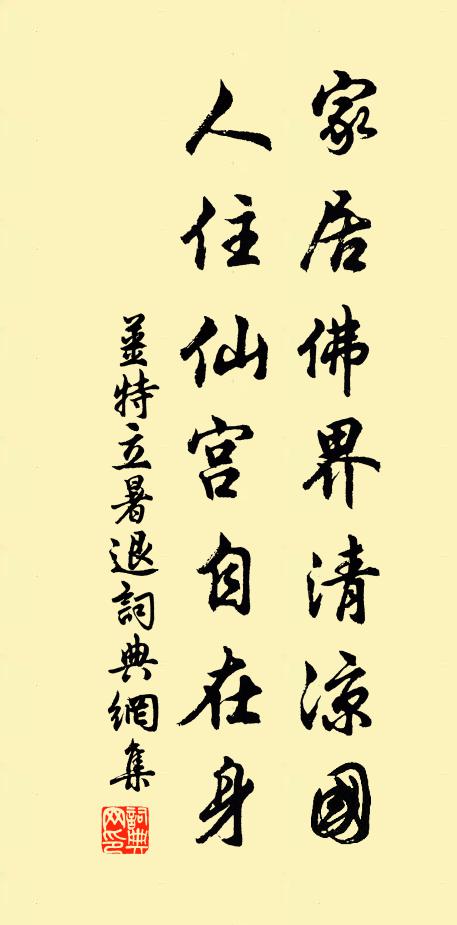 家居佛界清凉國
人住仙宫自在身
姜特立暑退詞典網集
詞典网印